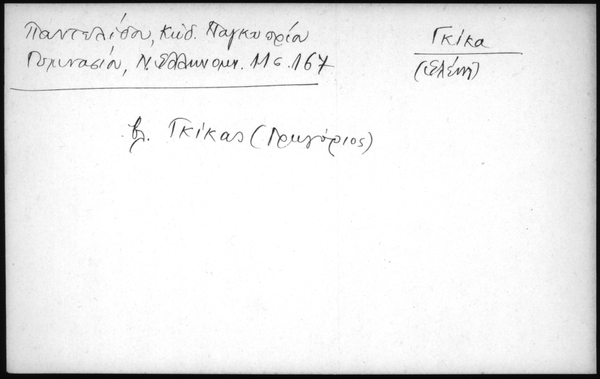 Παντελίδου, Κώδ. Παγκυπρίου
Γυμνασίου, Ν. Ελληνομν. 11 σ. 167
Γκίκα
(Ελένη)
βλ. Γκίκας (Γρηγόριος)